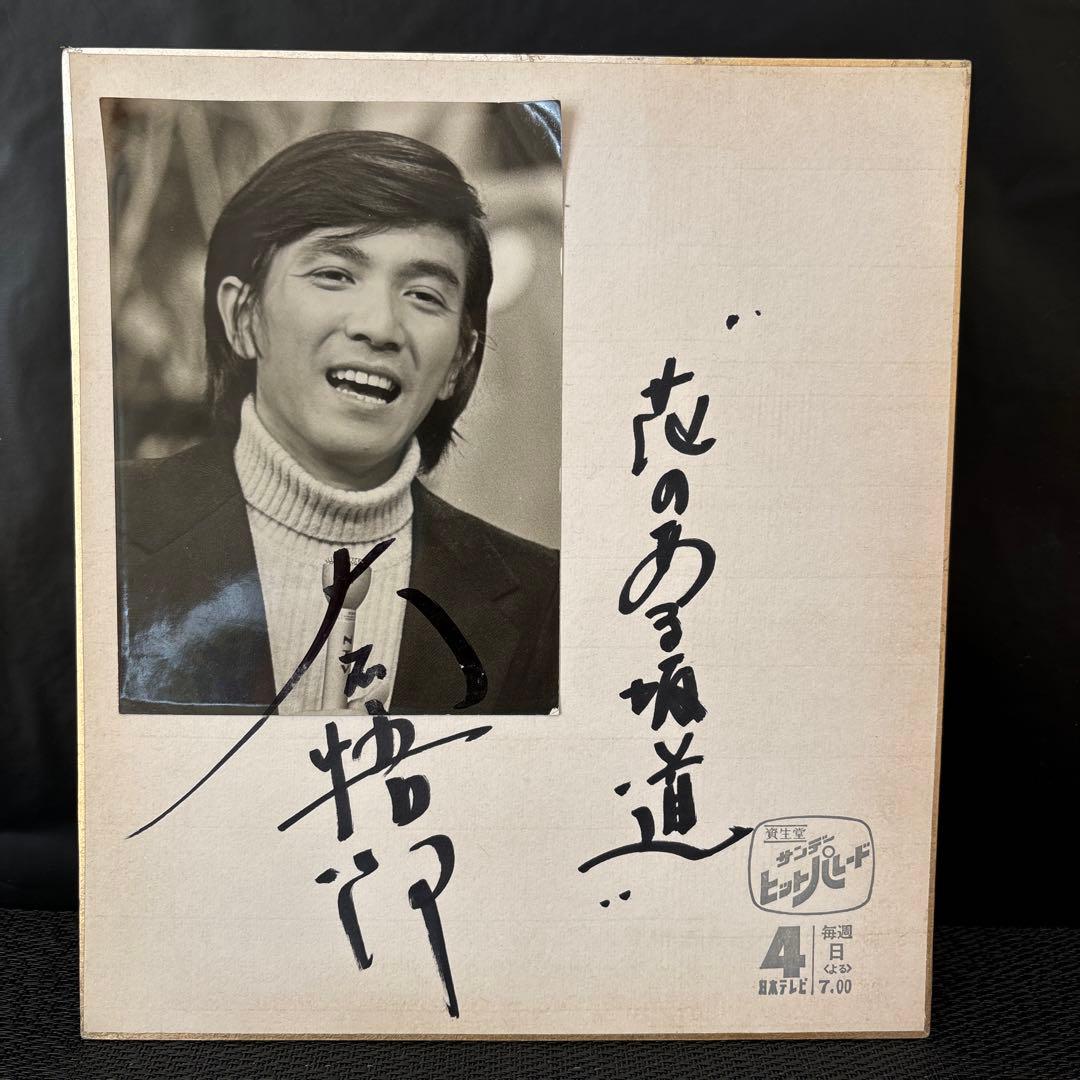 "花のある坂道"
大石悟郎
資生堂
サンデー
ヒットパレード
4
日本テレビ
毎週
日
<よる>
7.00